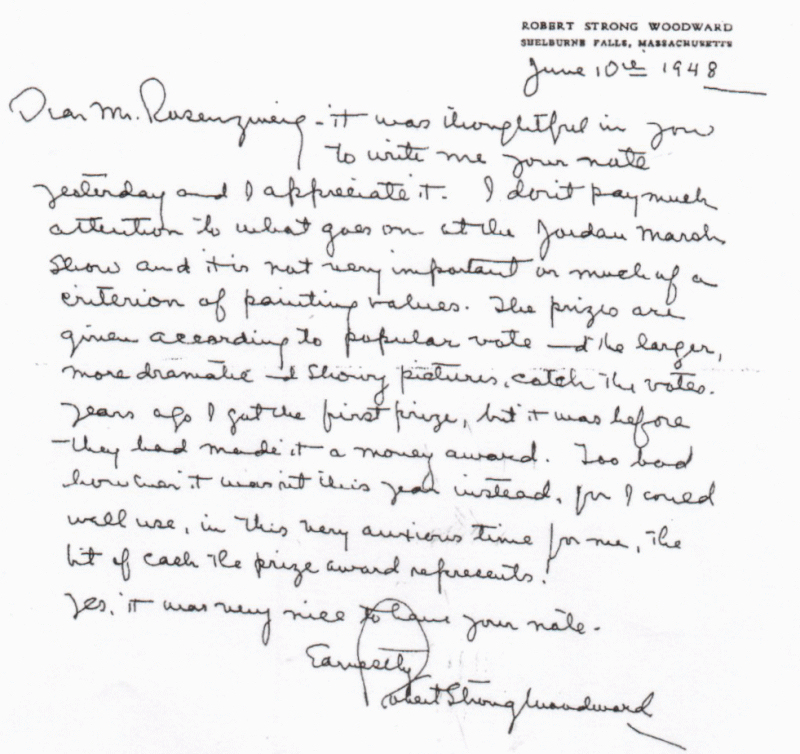 ROBERT STRONG WOODWARD
SHELBURNE FALLS, MASSACHUSETTS
June 10th 1948
Dear Mr. Rosenzweig - it was thoughtful in you
to write me your note
yesterday and I appreciate it. I don't pay much
attention to what goes on at the Jordan Marsh
Show and it is not very important or much of a
criterion of painting values. The prizes are
given according to popular vote and the larger,
more dramatic and showy pictures, catch the votes.
Years ago I got the first prize, but it was before
they had made it a money award. Too bad
however it wasn't this year instead, for I could
well use, in this very anxious time for me, the
bit of cash the prize award represents!
Yes, it was very nice to have your note.
Earnestly
Robert Strong Woodward